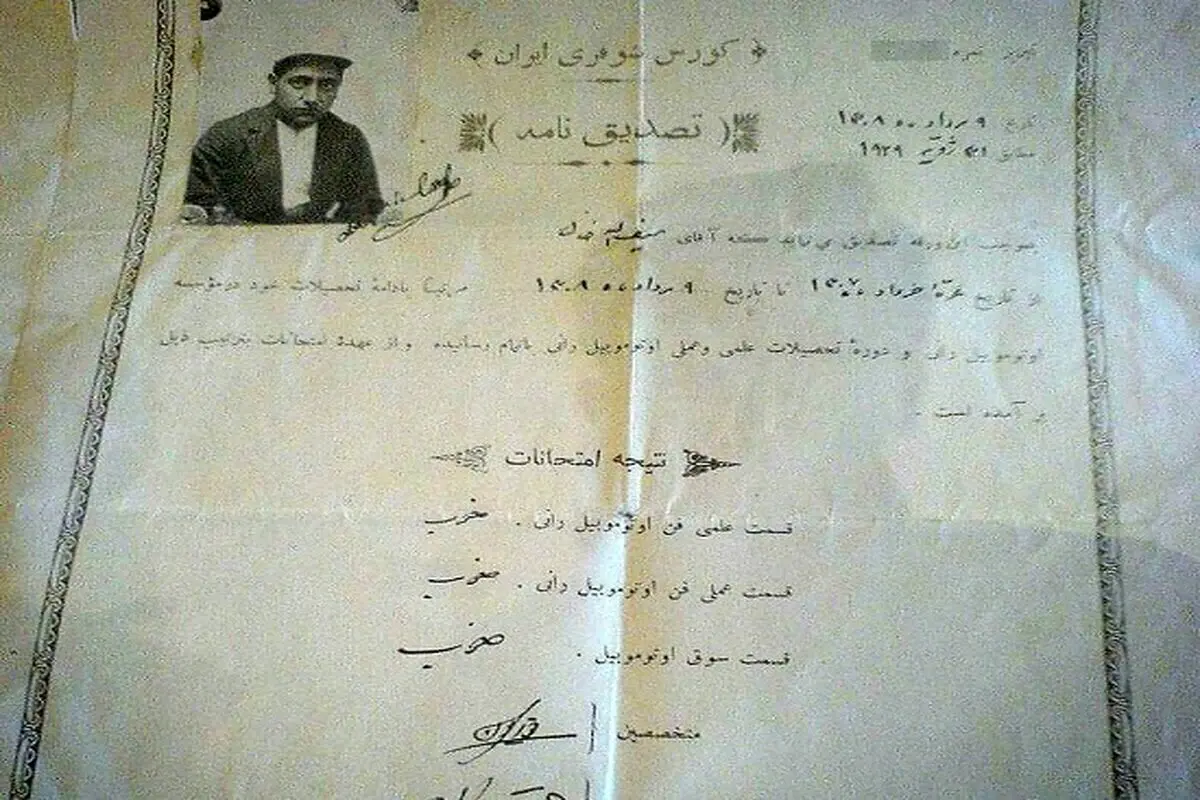 کورس شوفری ایران
نمره
تصدیق نامه
تاریخ ۹ مرداد ماه ۱۳۰۸
مطابق ۳۱ ژویه ۱۹۲۹
بموجب این ورقه تصدیق می نماید که آقای
از تاریخ غرهٔ خرداد ۱۳۰۷ تا تاریخ ۹ مرداد ماه ۱۳۰۸ مرتبا بادامهٔ تحصیلات خود در مؤسسه
اوتوموبیل رانی و دورهٔ تحصیلات علمی و عملی اوتوموبیل رانی باتمام رسانیده و از عهدهٔ امتحانات بترتیب ذیل
بر آمده است .
نتیجه امتحانات
قسمت علمی فن اوتوموبیل رانی . خوب
قسمت عملی فن اوتوموبیل رانی . خوب
قسمت سوق اوتوموبیل . خوب
متخصصین